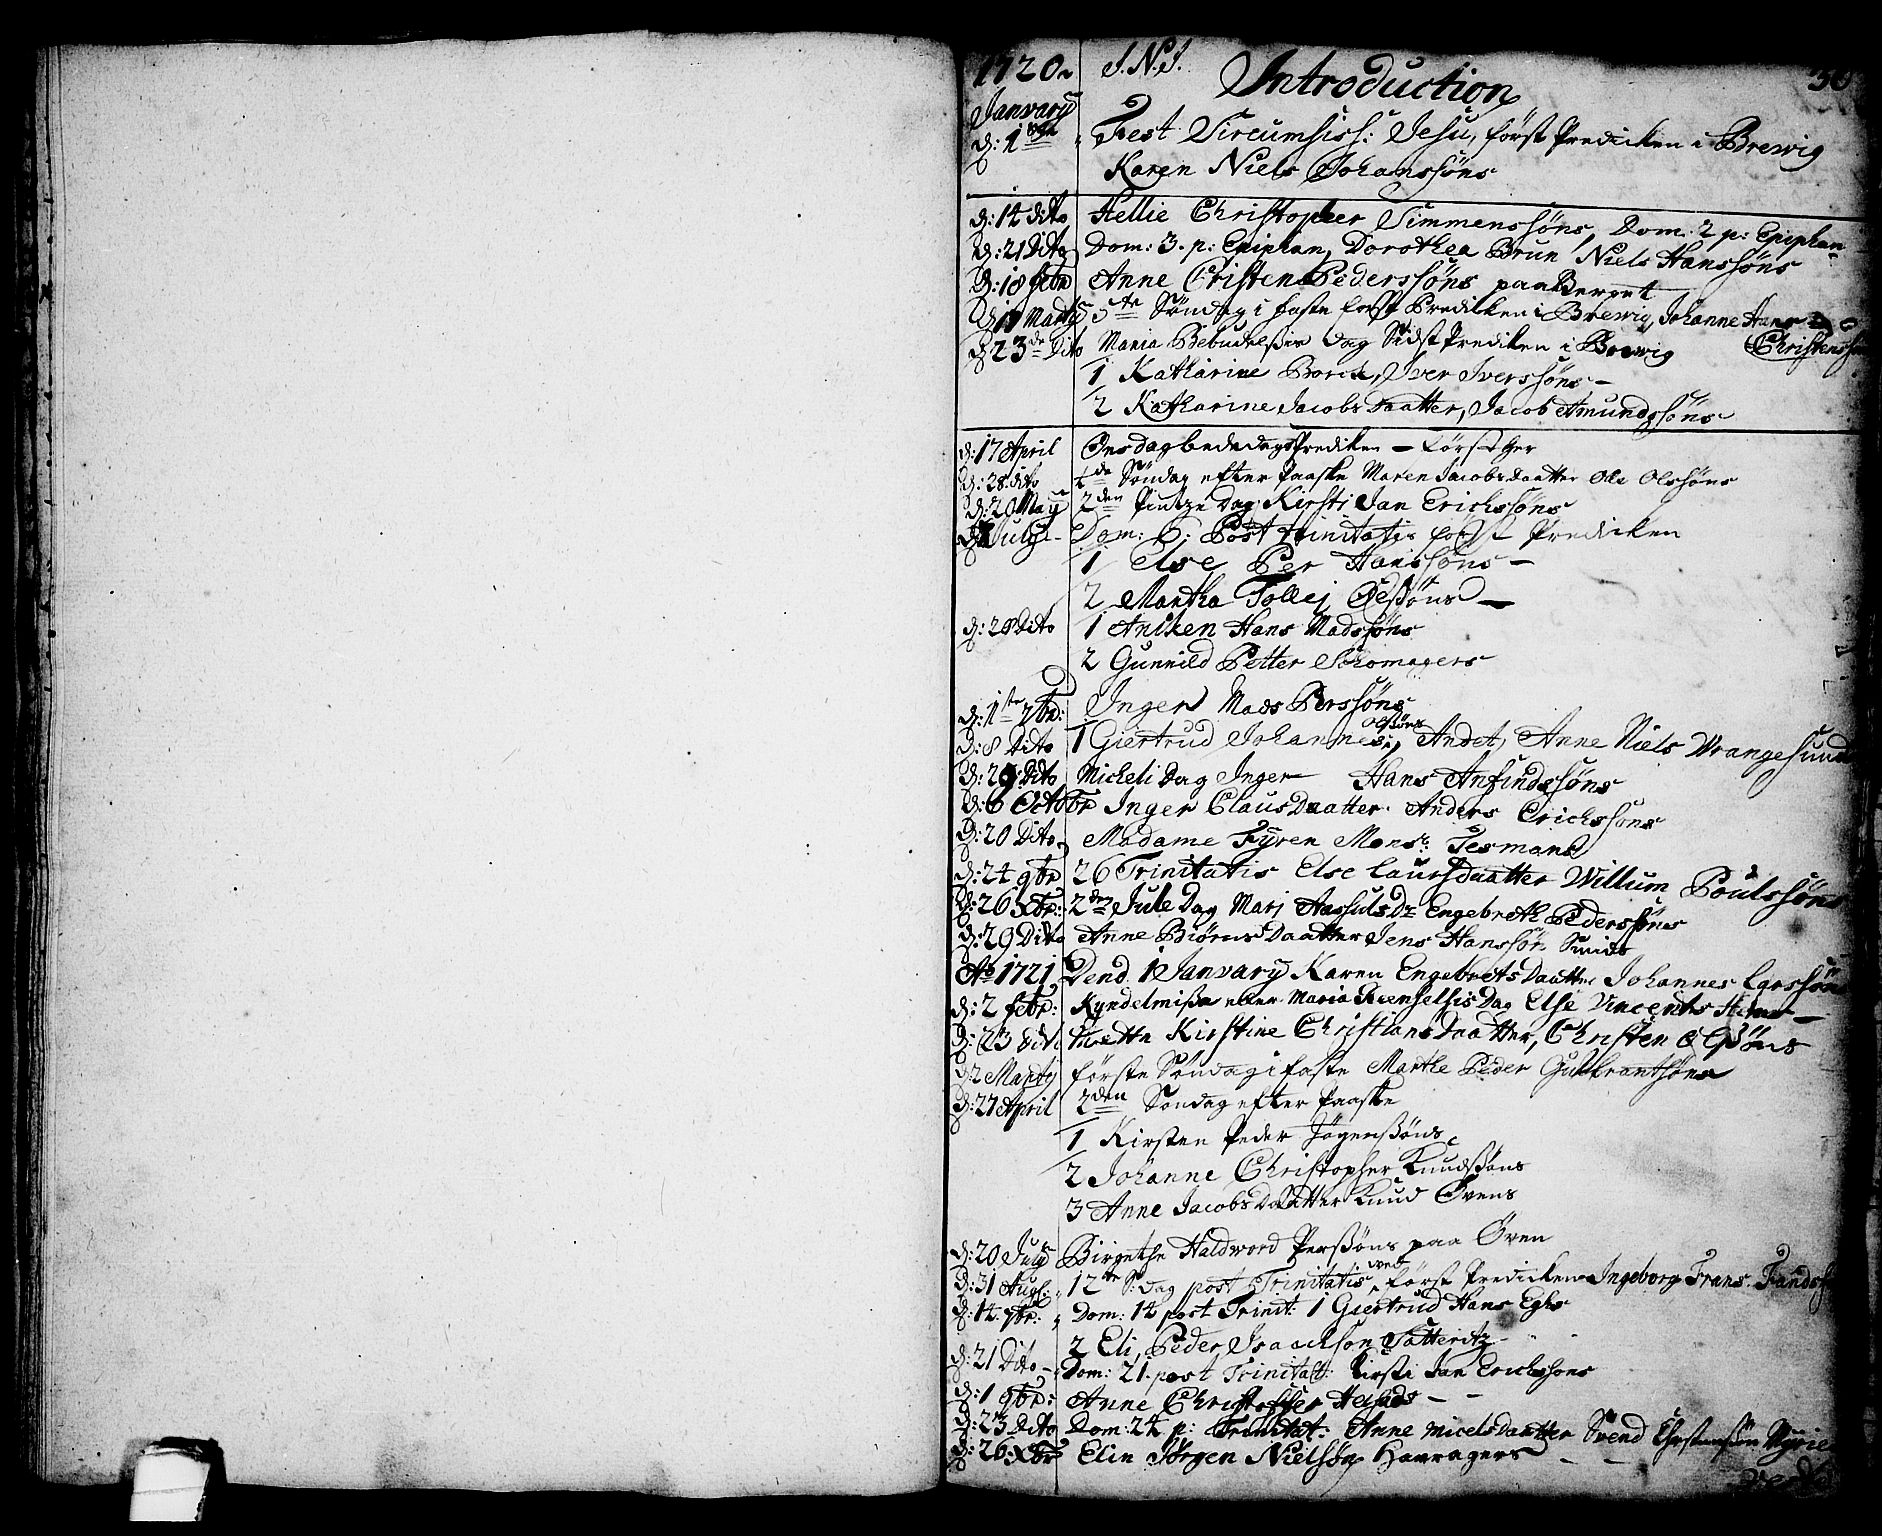 1720 J.N.J. Introduction 30
Janvary
d: 1 Fest Circumsiss: Jesu, först Predicken i Brewig
Karen Niels Johanssöns
d: 14 dito Hellie Christopher Simmenssöns, Dom: 2 p: Epiphan
d: 21 Dito Dom: 3. p: Epiphan, Dorothea Brun Niels Hanssöns
d: 18 febr Anne Cristen Pederssöns paa Berget
d 17 Marty 5te Söndag i faste först Predicken i Brewig, Johanne Hans
d 23de Dito Maria Bebudelses Dag Sidst Prediken i Brewig Christenss
1 Katharine Borck, Iver Iverssöns
2 Katharine Jacobs Daatter, Jacob Amundssöns
d: 17 April Onsdag bededags Prediken - Först her
d: 28 dito 4de Söndag efter Paaske Maren Jacobs daatter Ole Olssöns
d: 20 May 2den Pintze Dag Kirsti Jan Erichssöns
July Dom: 6: Post trinitatis först Predicken
1 Else Per Hanssöns
2 Martha Tollej Olssöns
d: 28 Dito 1 Aniken Hans Madssöns
2 Gunnild Petter Schomagers
d: 1ste 7br: Inger Mads Perssöns
olssöns
d: 8 Dito 1 Giertrud Johannes, Andet, Anne Niels Vrangesund
d: 29: Dito Micheli Dag Inger Hans Anfindssöns
d: 6 Octobr Inger Claus Daatter Anders Erichssöns
d: 20 Dito Madame Fyren Mons: Tesmans
d: 24 9br 26 Trinitatis Else Laursdaatter Willum Poulssöns
d: 26 Xbr: 2den Jule Dag Marj Aassuls Dr Engebreth Pederssöns
d: 29 Dito Anne Biörns Daatter Jens Hanssön Smids
Ao 1721 Dend 1 Janvary Karen Engebrets Daatter Johannes Larssöns
d: 2 febr: Kyndelmisse eller Maria Renselsis Dag Else Vincents
d: 23 Dito Kirstine Christians Daatter, Christen Olssöns
d: 2 Marty förste Söndag i faste Marthe Peder Gulbrantsöns
d: 27 April 2den Söndag efter Paaske
1 Kirsten Peder Jögenssöns
2 Johanne Christopher Knudssöns
3 Anne Jacobs Daatter Knud Övens
d: 20 July Birgethe Haldword Perssöns paa Ören
d: 31 Aug: 12te S: Dag post Trinitatis ved först Predicken Ingeborg Frans
d: 14 7br: Dom: 14 post Trinit: 1 Giertrud Hans Eghs
2 Eli, Peder Isaackson
d: 21 Dito Dom: 21. post Trinitat: Kirsti Jan Erichssons
d: 1 9br: Anne Christoffer
d: 23 Dito Dom: 24 p: Trinitat: Anne Micelsdaatter Svend Christenssön Myrie
d: 26 Xbr Elin Jörgen Nielsön Havragers